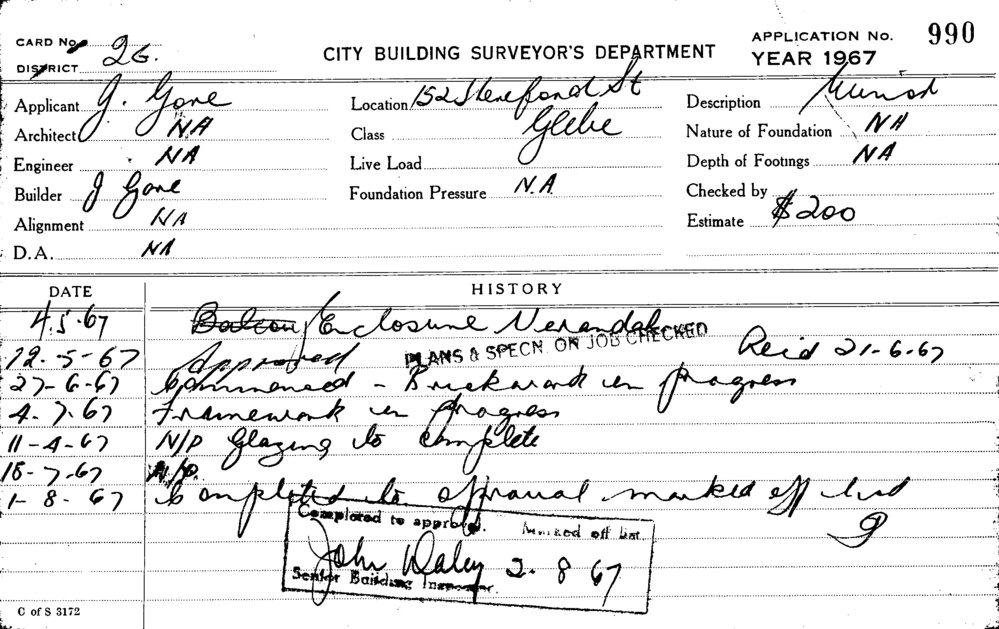 CARD No.
DISTRICT 26.
CITY BUILDING SURVEYOR'S DEPARTMENT
APPLICATION No. 990
YEAR 1967
Applicant J. Gore
Architect NA
Engineer NA
Builder J Gore
Alignment NA
D.A. NA
Location 152 Hereford St
Class Glebe
Live Load
Foundation Pressure N.A.
Description Minor
Nature of Foundation NA
Depth of Footings NA
Checked by
Estimate $200
DATE HISTORY
4.5.67 Balcony Enclosure Verandah
12-5-67 Approved PLANS & SPECN. ON JOB CHECKED Reid 21-6-67
27-6-67 Commenced - Brickwork in progress
4-7-67 Framework in progress
11-4-67 N/P Glazing to complete
18-7-67 N/P.
1-8-67 Completed to approval marked off list
Completed to approval. Marked off list.
John Daley 2-8-67
Senior Building Inspector.
C of S 3172